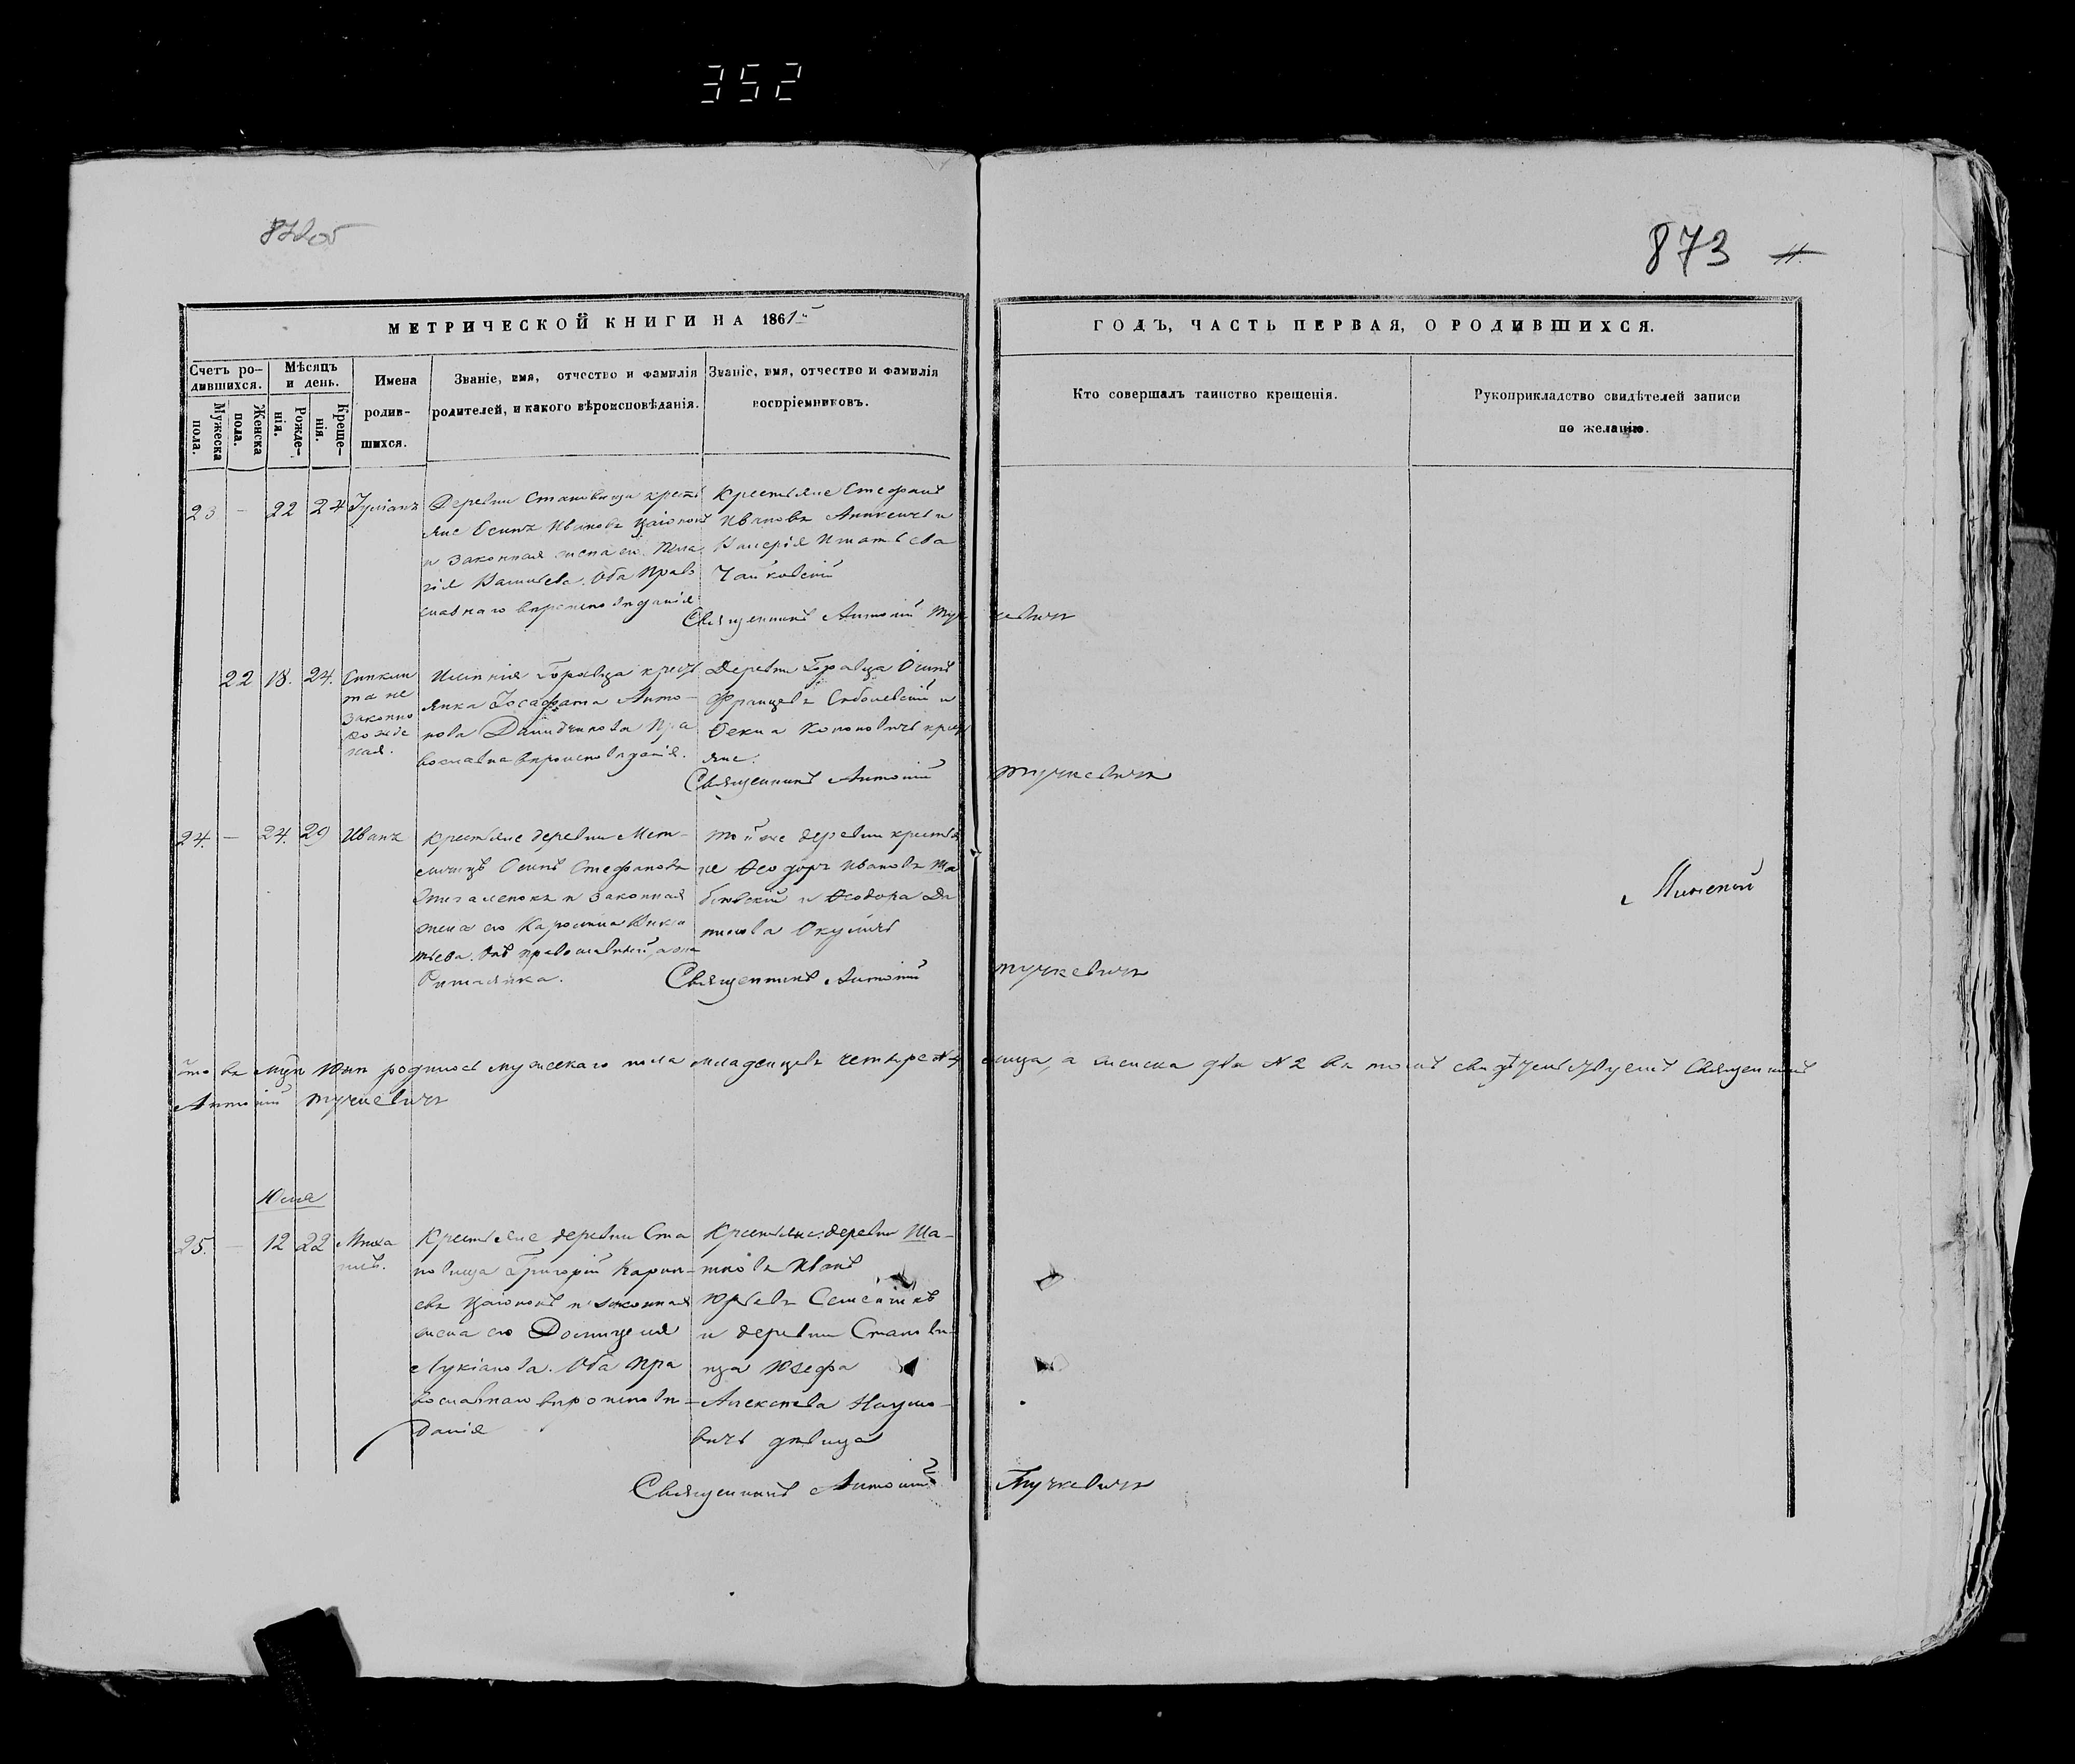 352
872об
873 11.
МЕТРИЧЕСКОЙ КНИГИ НА 1861й
ГОДЪ, ЧАСТЬ ПЕРВАЯ, О РОДИВШИХСЯ.
Счетъ ро-
дившихся.
Мужеска
пола.
Женска
пола.
Мѣсяцъ
и день.
Рожде-
нія.
Креще-
нія.
Имена
родив-
шихся.
Званіе, имя, отчество и фамилія
родителей, и какого вѣроисповѣданія.
Званіе, имя, отчество и фамилія
воспріемниковъ.
Кто совершалъ таинство крещенія.
Рукоприкладство свидѣтелей записи
по желанію.
23 - 22 24 Іуліанъ
Деревни Становища кресть
яне Осипъ Ивановъ
и законная жена его Пела
гія Васильева. Оба Право
славнаго вѣроисповѣданія
Крестьяне Стефанъ
Ивановъ и
Валерія Игнатьева
Чайковскій
Священникъ Антоній Тучкевичъ
22 18. 24.
незаконно
рожде
ная.
Имѣнія Горавца кресть
янка Іосафата Анто-
нова Пра
вославна вѣроисповѣданія.
Деревни Горавца Осипъ
Францевъ Соболевскій и
Ѳекла Кононовичъ кресть
яне.
Священникъ Антоній Тучкевичъ
24. - 24. 29 Иванъ
Крестьяне деревни
Осипъ Стефановъ
и законная
жена его Каролина
Онъ православный, а она
Римлянка.
Той же деревни крестья
не Ѳеодоръ Ивановъ
и Ѳеодора Да
нилова Окуличъ
Священникъ Антоній Тучкевичъ
Минской
Что въ Іюнѣ родилось мужескаго пола младенцевъ четыре №4 лица, а женска два №2 въ томъ свидѣтельствуетъ Священникъ
Антоній Тучкевичъ
Юля
25. - 12 22 Миха
илъ.
Крестьяне деревни Ста
новища Григорій Карпо-
въ и законная
жена его Домицеля
Лукіанова. Оба Пра
вославнаго вѣроисповѣ-
данія
Крестьяне: деревни Ша-
Иванъ
Юрьевъ
и деревни Станови-
ща Юзефа
Алексѣева Наумо-
вичъ дѣвица
Священникъ Антоній Тучкевичъ